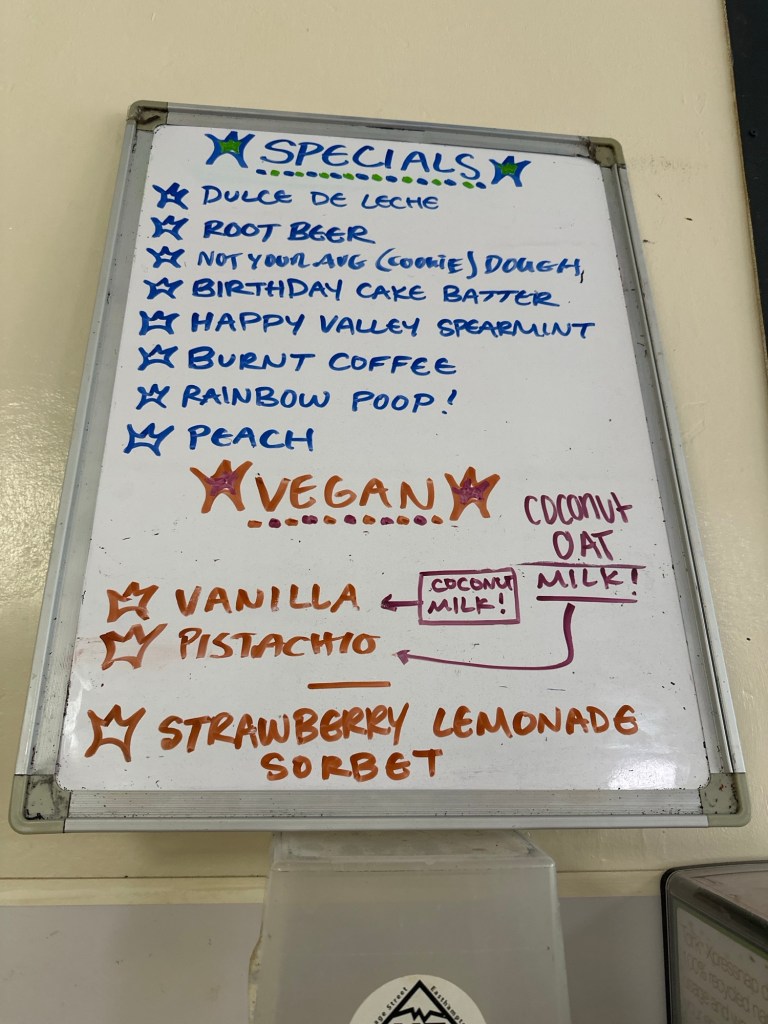 SPECIALS
DULCE DE LECHE
ROOT BEER
NOT YOUR AVG (COOKIE) DOUGH,
BIRTHDAY CAKE BATTER
HAPPY VALLEY SPEARMINT
BURNT COFFEE
RAINBOW POOP!
PEACH
VEGAN
COCONUT
OAT
MILK!
COCONUT
MILK!
VANILLA
PISTACHIO
STRAWBERRY LEMONADE
SORBET
Street Easthampt